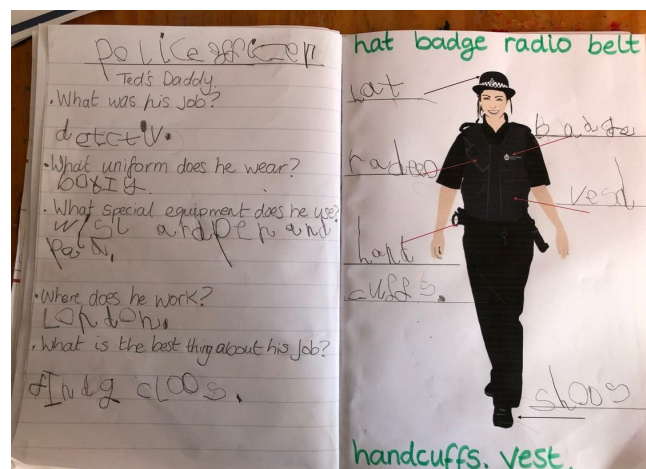 police officer
Ted's Daddy.
. What was his job?
detctv.
. What uniform does he wear?
. What special equipment does he use?
wisl and pen and
. Where does he work?
London.
. What is the best thing about his job?
findg cloos.
hat badge radio belt
hat
badge
radeeo
vesd
hand
cuffs.
shoos
handcuffs. vest